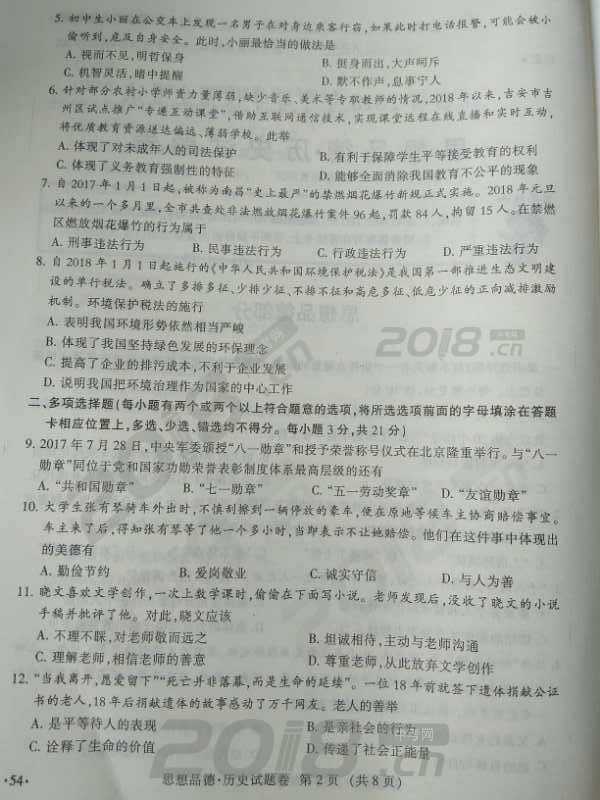 5. 初中生小丽在公交车上发现一名男子在对身边乘客行窃,如果此时打电话报警,可能会被小
偷听到,危及自身安全。此时,小丽最恰当的做法是
A. 视而不见,明哲保身 B. 挺身而出,大声呵斥
C. 机智灵活,暗中提醒 D. 默不作声,息事宁人
6. 针对部分农村小学师资力量薄弱,缺少音乐、美术等专职教师的情况,2018年以来,吉安市吉
州区试点推广“专递互动课堂”,借助互联网通信技术,实现课堂远程在线直播和实时互动,
将优质教育资源送达偏远、薄弱学校。此举
A. 体现了对未成年人的司法保护 B. 有利于保障学生平等接受教育的权利
C. 体现了义务教育强制性的特征 D. 能够全面消除我国教育不公平的现象
7. 自2017年1月1日起,被称为南昌“史上最严”的禁燃烟花爆竹新规正式实施。2018年元旦
以来的一个多月里,全市共查处非法燃放烟花爆竹案件96起,罚款84人,拘留15人。在禁燃
区燃放烟花爆竹的行为属于
A. 刑事违法行为 B. 民事违法行为 C. 行政违法行为 D. 严重违法行为
8. 自2018年1月1日起施行的《中华人民共和国环境保护税法》是我国第一部推进生态文明建
设的单行税法。确立了多排多征、少排少征、不排不征和高危多征、低危少征的正向减排激励
机制。环境保护税法的施行
A. 表明我国环境形势依然相当严峻
B. 体现了我国坚持绿色发展的环保理念
C. 提高了企业的排污成本,不利于企业发展
D. 说明我国把环境治理作为国家的中心工作
二、多项选择题(每小题有两个或两个以上符合题意的选项,将所选选项前面的字母填涂在答题
卡相应位置上,多选、少选、错选均不得分。每小题3分,共21分)
9. 2017年7月28日,中央军委颁授“八一勋章”和授予荣誉称号仪式在北京隆重举行。与“八一
勋章”同位于党和国家功勋荣誉表彰制度体系最高层级的还有
A. “共和国勋章” B. “七一勋章” C. “五一劳动奖章” D. “友谊勋章”
10. 大学生张有琴骑车外出时,不慎刮擦到一辆停放的豪车,便在原地等候车主协商赔偿事宜。
车主来了后,得知张有琴等了他一个多小时,当即表示不让她赔偿。他们在这件事中体现出
的美德有
A. 勤俭节约 B. 爱岗敬业 C. 诚实守信 D. 与人为善
11. 晓文喜欢文学创作,一次上数学课时,偷偷在下面写小说。老师发现后,没收了晓文的小说
手稿并批评了他。对此,晓文应该
A. 不理不睬,对老师敬而远之 B. 坦诚相待,主动与老师沟通
C. 理解老师,相信老师的善意 D. 尊重老师,从此放弃文学创作
12. “当我离开,愿爱留下”“死亡并非落幕,而是生命的延续”。一位18年前就签下遗体捐献公证
书的老人,18年后捐献遗体的故事感动了万千网友。老人的善举
A. 是平等待人的表现 B. 是亲社会的行为
C. 诠释了生命的价值 D. 传递了社会正能量
·54· 思想品德·历史试题卷 第2页 (共8页)
中考网
2018.cn
中考网
2018.cn